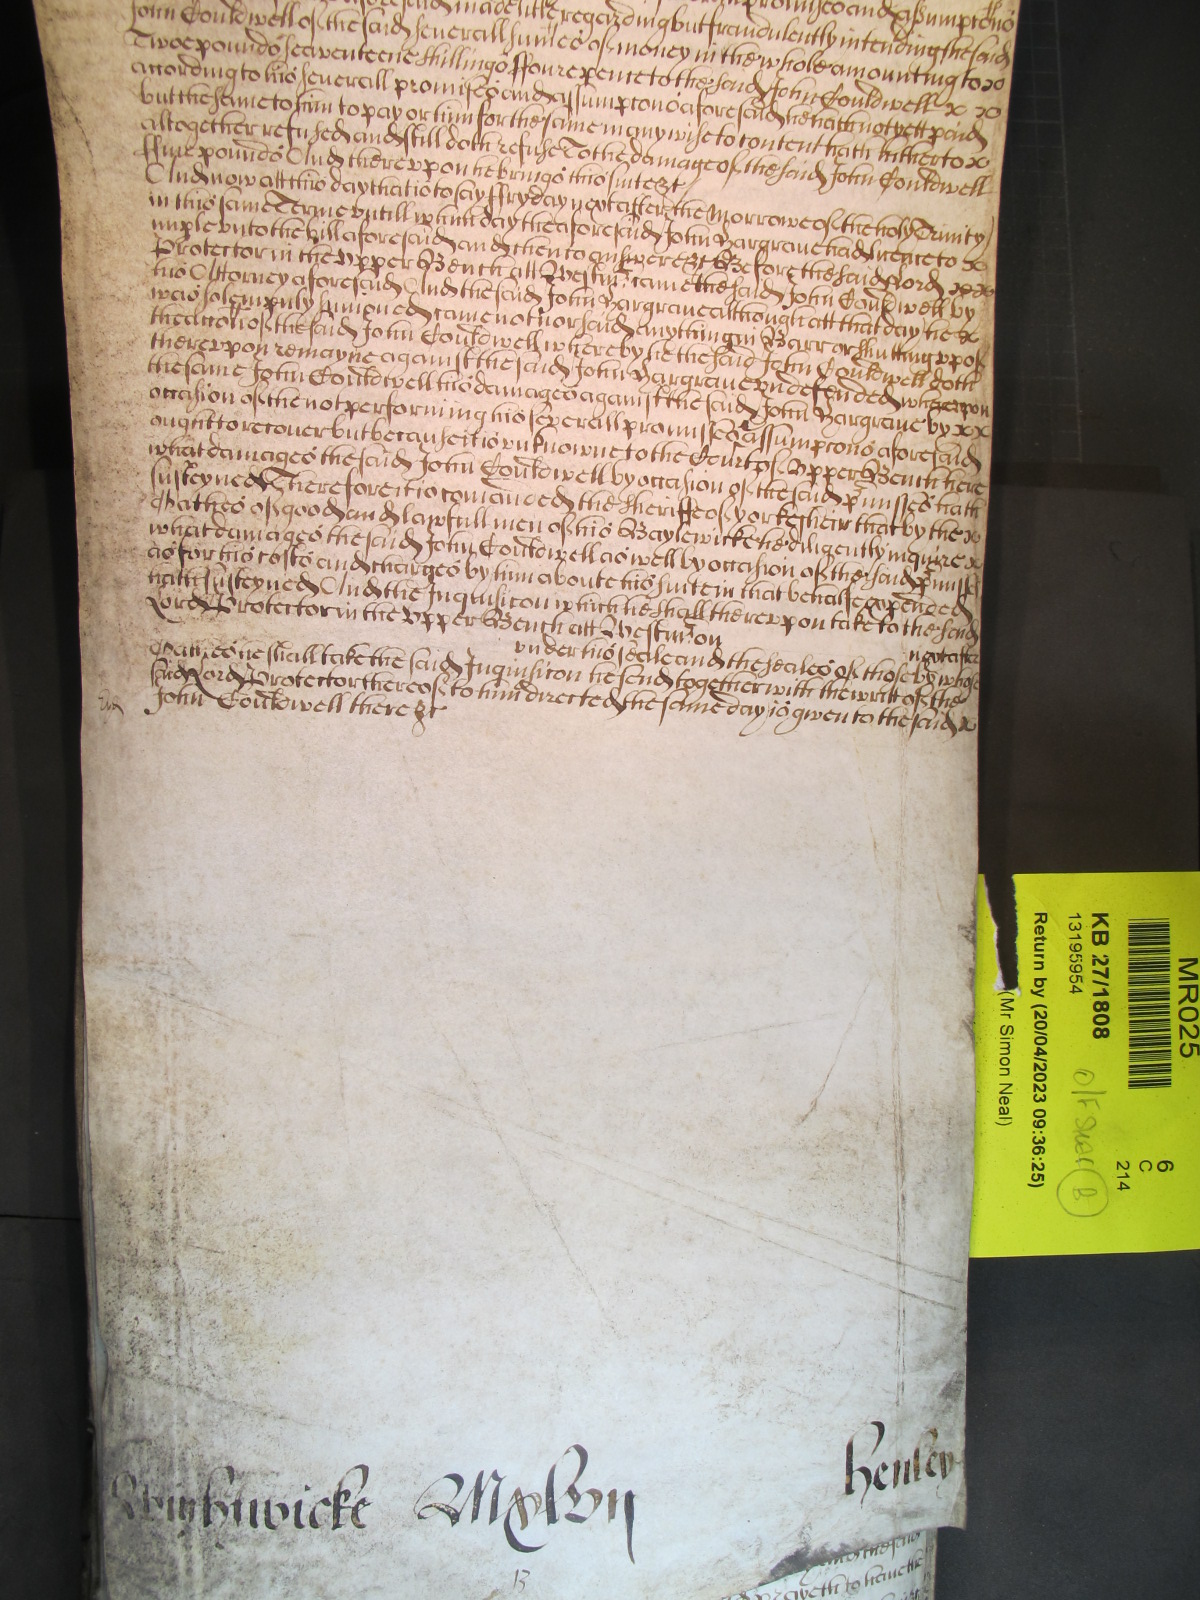 John Couldwell of the said severall sumes of money in the whole amounting to x
Twoe pounds seaventeene shillings ffoure pence to the said John Couldwell x x
according to his severall promises and assumptons aforesaid he hath not yett paid
but the same to him to pay or him for the same in any wise to content hath hitherto x
altogether refused and still doth refuse To the damage of the said John Couldwell
ffive pounds And thereupon he brings this suite &c
And now att this day that is to say ffryday next after the Morrowe of the holy Trinity
in this same Terme untill which day the aforesaid John Hargrave had licence to x
imple unto the bill aforesaid and then to answere &c Before the said Lord x x
Protector in the Upper Bench att Westmr came the said John Couldwell by
his Attorney aforesaid And the said John Hargrave although att that day he x
was solempnly sumoned came not nor said anything in Barr or shutting upp of
the accon of the said John Couldwell whereby he the said John Couldwell doth
thereupon remayne against the said John Hargrave undefended whereupon
the same John Couldwell his damages against the said John Hargrave by x x
occasion of the not performing his severall promisses & assumptons aforesaid
ought to recover but because it is unknowne to the Court of Upper Bench here
what damages the said John Couldwell by occasion of the said pmisses hath
susteyned Therefore it is comanded the Sheriffe of Yorkesheir that by the x
Oathes of good and lawfull men of his Baylewicke he diligently inquire x
what damages the said John Couldwell as well by occasion of the said pmisses
as for his costs and charges by him about his suite in that behalfe expended
hath susteyned And the Inquisicon which he shall thereupon take to the said
Lord Protector in the Upper Bench att Westmr on next after
under his seale and the seales of those by whose
Oathes he shall take the said Inquisicon he send together with the writt of the
said Lord Protector thereof to him directed the same day is given to the said x
John Couldwell there &c
Henley
MxlVII
13
MR025
KB 27/1808
13195954
Return by (20/04/2023 09:36:25)
(Mr Simon Neal)
6
C
214
B